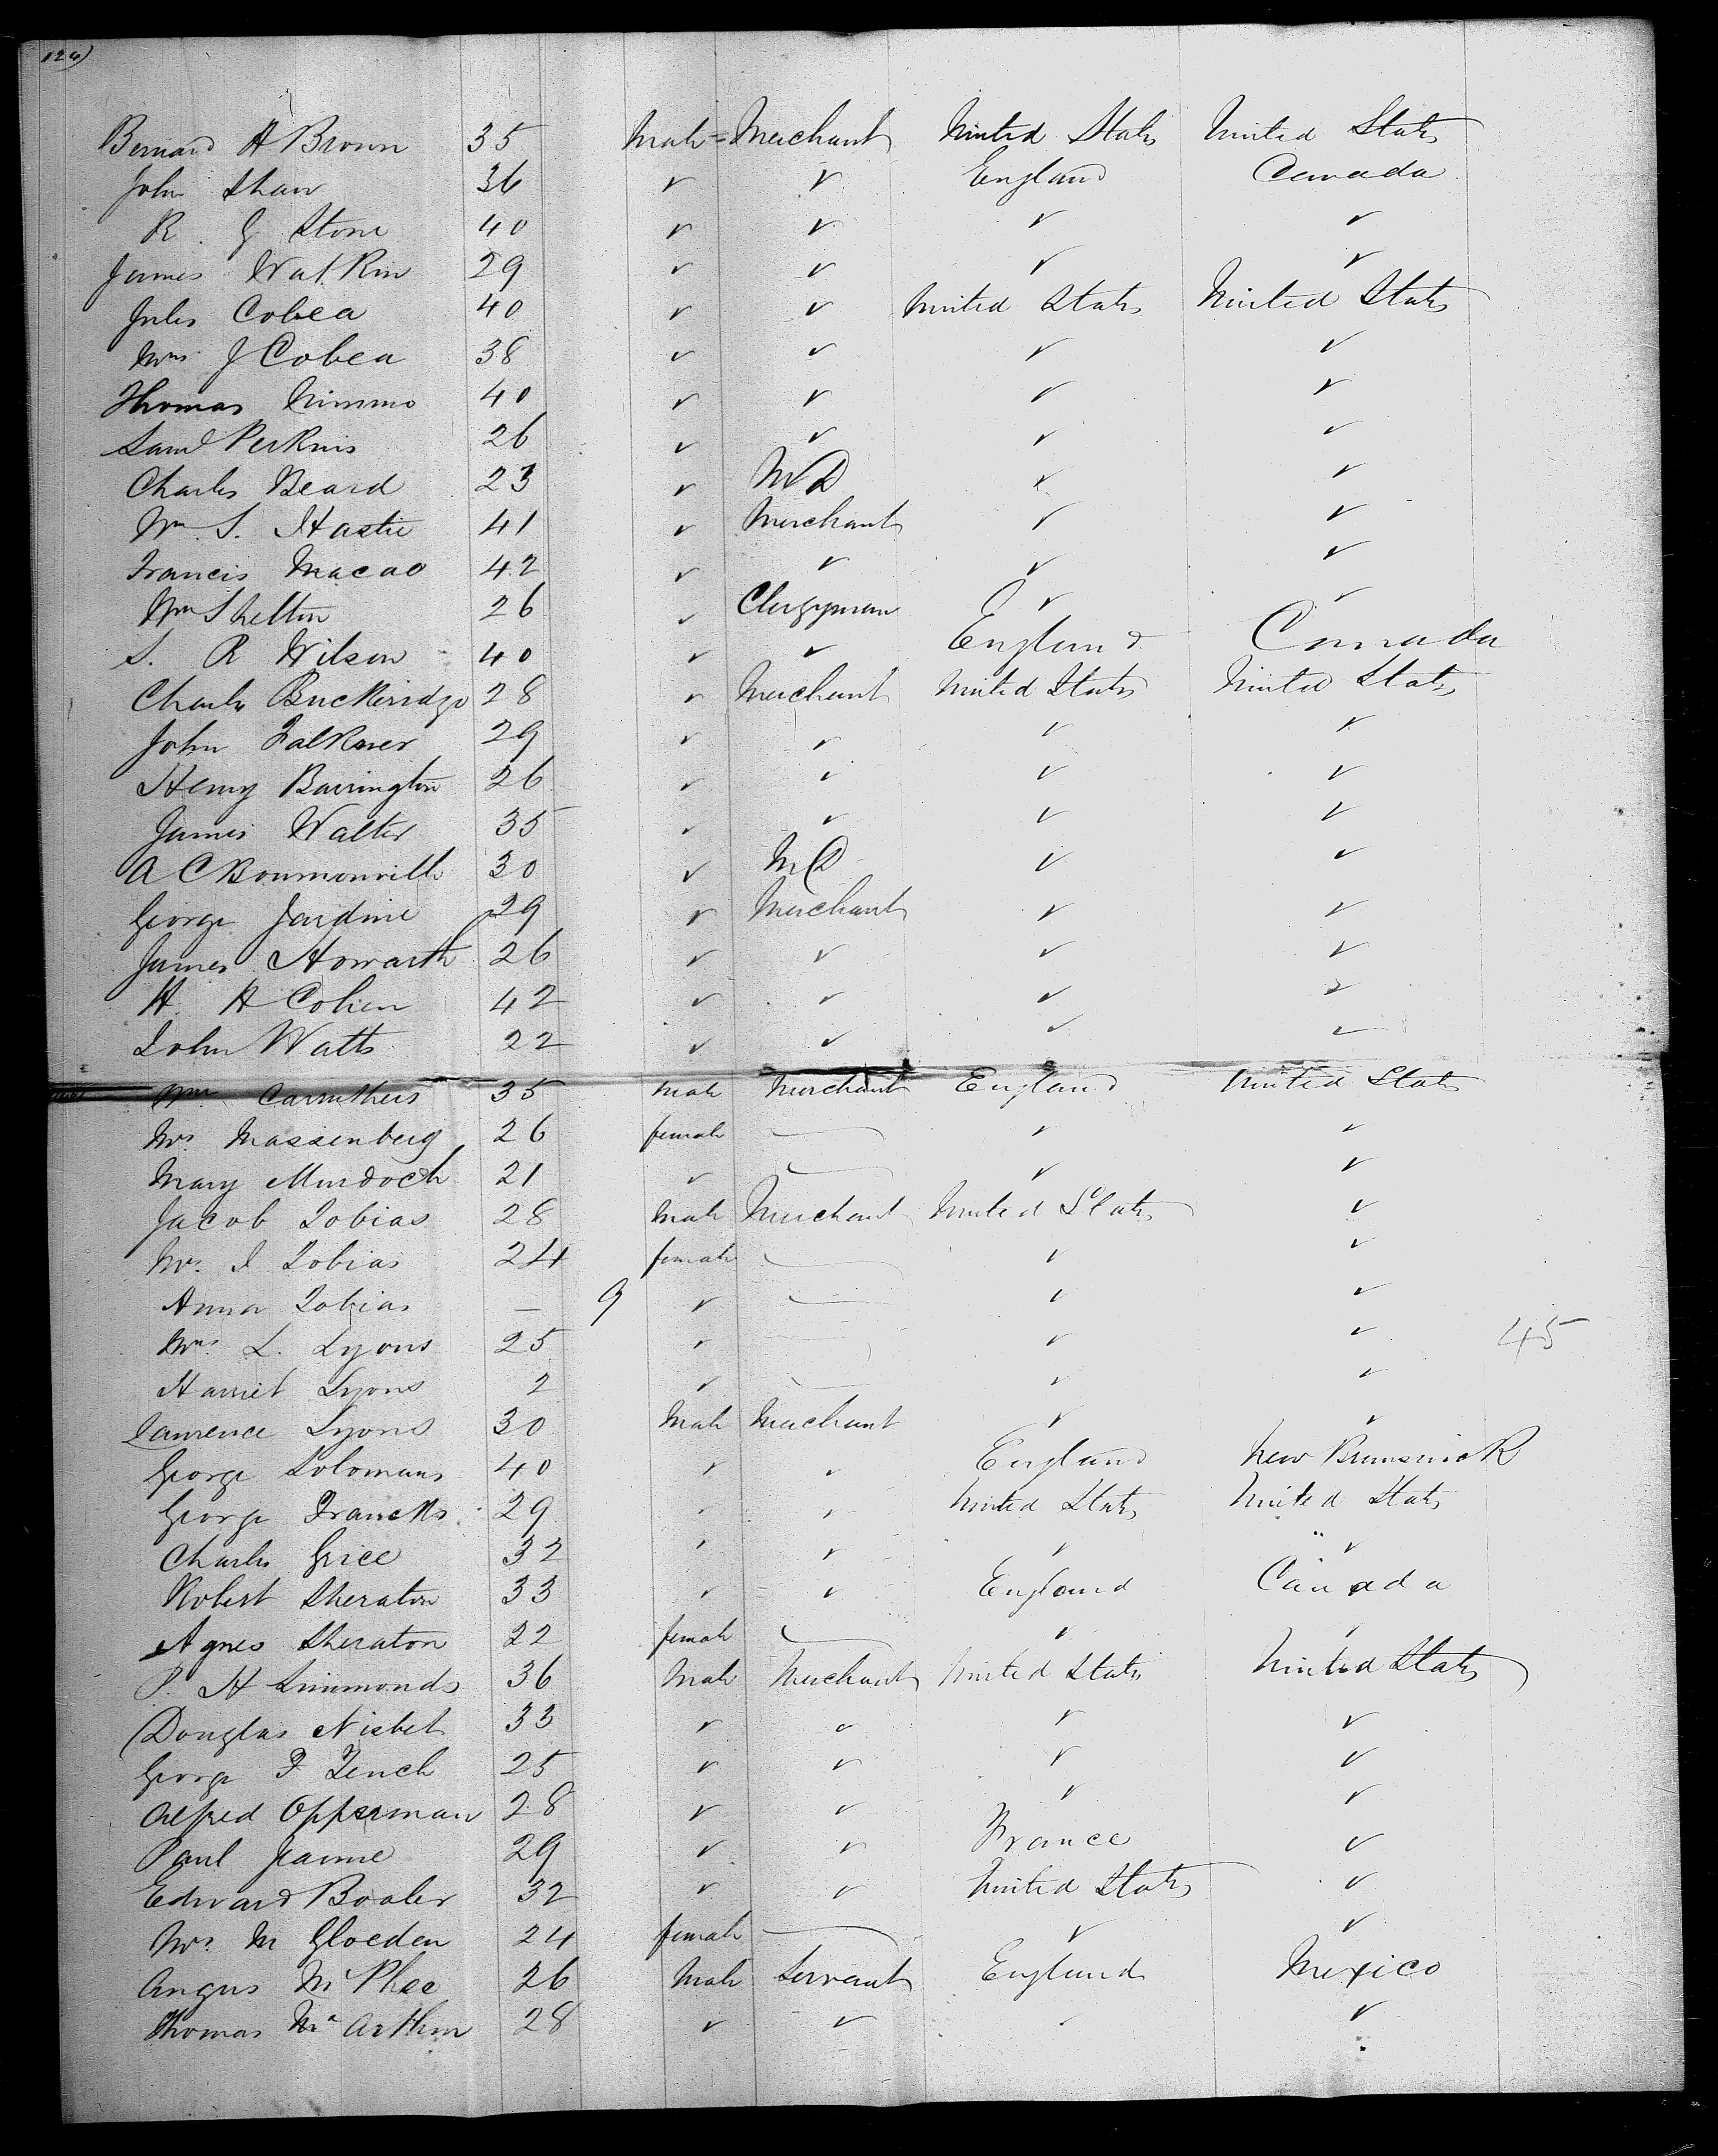 126)
Bernard H Brown 35 Male = Merchant United States United States
John Shaw 36 ✓ ✓ England Canada
R. G Stone 40 ✓ ✓ ✓ ✓
James Watkin 29 ✓ ✓ ✓ ✓
Jules Cobea 40 ✓ ✓ United States United States
Mrs J Cobea 38 ✓ ✓ ✓ ✓
Thomas Nimmo 40 ✓ ✓ ✓ ✓
Saml Perkins 26 ✓ ✓ ✓ ✓
Charles Beard 23 ✓ MD ✓ ✓
Wm S. Hastie 41 ✓ Merchant ✓ ✓
Francis Macao 42 ✓ ✓ ✓ ✓
Wm Shelton 26 ✓ Clergyman ✓ ✓
S. R Wilson 40 ✓ ✓ England Cannada
Charles Buckeridge 28 ✓ Merchant United States United States
John Falkner 29 ✓ ✓ ✓ ✓
Henry Barrington 26 ✓ ✓ ✓ ✓
James Walter 35 ✓ ✓ ✓ ✓
A C Bournonville 30 ✓ MD ✓ ✓
George Jardine 29 ✓ Merchant ✓ ✓
James Howarth 26 ✓ ✓ ✓ ✓
H. H Cohen 42 ✓ ✓ ✓ ✓
John Watts 22 ✓ ✓ ✓ ✓
Wm Carruthers 35 Male Merchant England United States
Mrs Massenberg 26 female — ✓ ✓
Mary Murdoch 21 ✓ — ✓ ✓
Jacob Tobias 28 Male Merchant United States ✓
Mrs J Tobias 24 female — ✓ ✓
Anna Tobias — 9 ✓ — ✓ ✓
Mrs L. Lyons 25 ✓ — ✓ ✓ 45
Harriet Lyons 2 ✓ — ✓ ✓
Laurence Lyons 30 Male Merchant ✓ ✓
George Solomans 40 ✓ ✓ England New Brunswick
George Francks 29 ✓ ✓ United States United States
Charles Grice 32 ✓ ✓ ✓ " ✓
Robert Sheraton 33 ✓ ✓ England Canada
Agnes Sheraton 22 female — ✓ ✓
P. H Simmonds 36 Male Merchant United States United States
Douglas Nisbet 33 ✓ ✓ ✓ ✓
George F Tench 25 ✓ ✓ ✓ ✓
Alfred Opperman 28 ✓ ✓ ✓ ✓
Paul Jeanne 29 ✓ ✓ France ✓
Edward Booler 32 ✓ ✓ United States ✓
Mrs M Gloeden 24 female — ✓ ✓
Angus McPhee 26 Male Servant England Mexico
Thomas McArthur 28 ✓ ✓ ✓ ✓